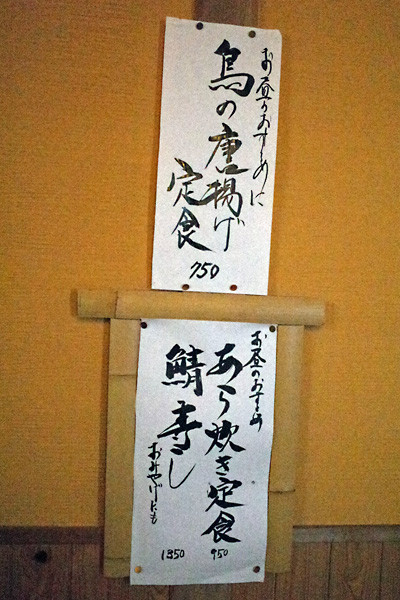 お昼のおすすめに
鳥の唐揚げ
定食
750
お昼のおすすめ
あら炊き定食
950
鯖寿し
おみやげにも
1350